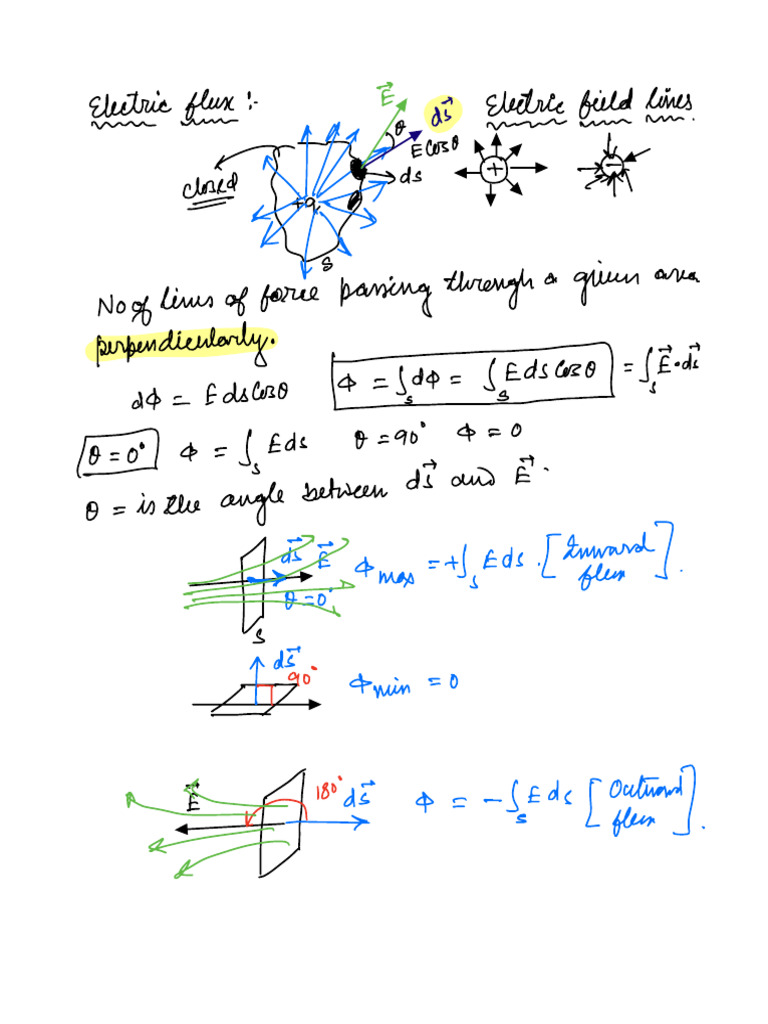 Electric flux :-
Electric field lines.
E⃗
ds⃗
θ
E Cosθ
ds
closed
+q
S
+
−
No of lines of force passing through a given area
perpendicularly.
dΦ = E ds Cosθ
Φ = ∫s dΦ = ∫s E ds Cosθ = ∫s E⃗ · ds⃗
θ = 0° Φ = ∫s E ds θ = 90° Φ = 0
θ = is the angle between ds⃗ and E⃗.
ds⃗ E⃗
θ = 0°
S
Φmax = +∫s E ds. [Inward flux].
ds⃗
90°
Φmin = 0
E⃗
180°
ds⃗
Φ = −∫s E ds [Outward flux].